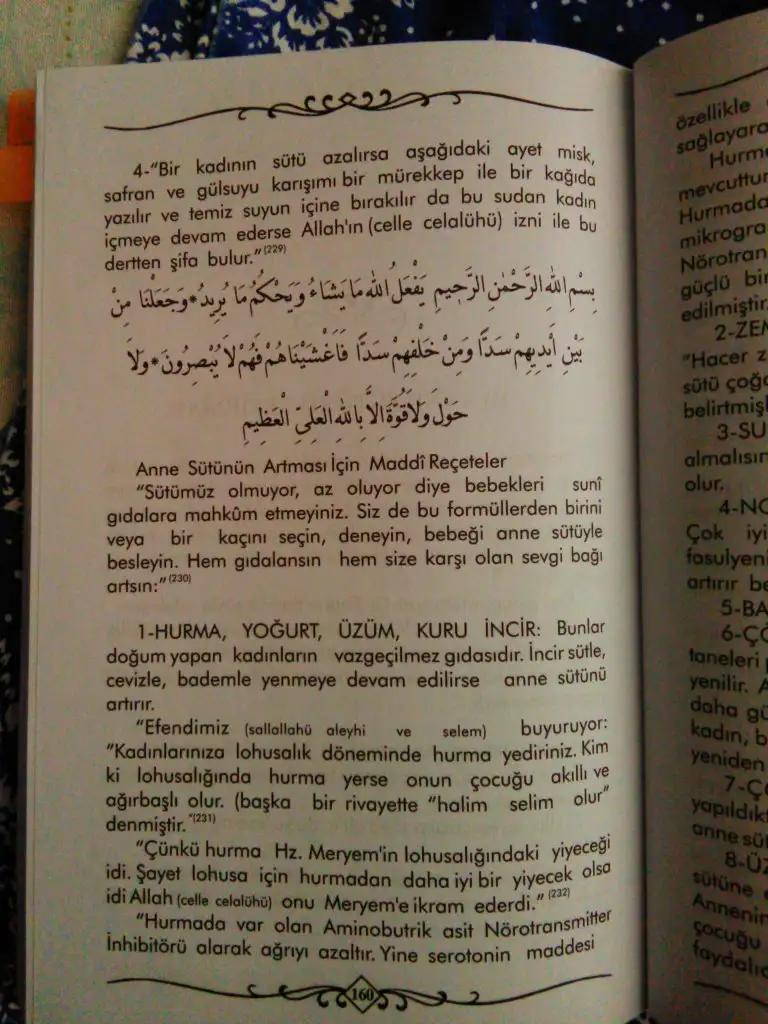 4-“Bir kadının sütü azalırsa aşağıdaki ayet misk,
safran ve gülsuyu karışımı bir mürekkep ile bir kağıda
yazılır ve temiz suyun içine bırakılır da bu sudan kadın
içmeye devam ederse Allah'ın (celle celalühü) izni ile bu
dertten şifa bulur.”(229)
بِسْمِ اللهِ الرَّحْمٰنِ الرَّحِيمِ يَفْعَلُ اللهُ مَا يَشَاءُ وَيَحْكُمُ مَا يُرِيدُ * وَجَعَلْنَا مِنْ
بَيْنِ أَيْدِيهِمْ سَدًّا وَمِنْ خَلْفِهِمْ سَدًّا فَأَغْشَيْنَاهُمْ فَهُمْ لَا يُبْصِرُونَ * وَلَا
حَوْلَ وَلَا قُوَّةَ اِلَّا بِاللهِ الْعَلِيِّ الْعَظِيمِ
Anne Sütünün Artması İçin Maddî Reçeteler
“Sütümüz olmuyor, az oluyor diye bebekleri sunî
gıdalara mahkûm etmeyiniz. Siz de bu formüllerden birini
veya bir kaçını seçin, deneyin, bebeği anne sütüyle
besleyin. Hem gıdalansın hem size karşı olan sevgi bağı
artsın:”(230)
1-HURMA, YOĞURT, ÜZÜM, KURU İNCİR: Bunlar
doğum yapan kadınların vazgeçilmez gıdasıdır. İncir sütle,
cevizle, bademle yenmeye devam edilirse anne sütünü
artırır.
“Efendimiz (sallallahü aleyhi ve selem) buyuruyor:
“Kadınlarınıza lohusalık döneminde hurma yediriniz. Kim
ki lohusalığında hurma yerse onun çocuğu akıllı ve
ağırbaşlı olur. (başka bir rivayette “halim selim olur”
denmiştir.”(231)
“Çünkü hurma Hz. Meryem'in lohusalığındaki yiyeceği
idi. Şayet lohusa için hurmadan daha iyi bir yiyecek olsa
idi Allah (celle celalühü) onu Meryem'e ikram ederdi.”(232)
“Hurmada var olan Aminobutrik asit Nörotransmitter
İnhibitörü alarak ağrıyı azaltır. Yine serotonin maddesi
160
özellikle
sağlayara
Hurme
mevcuttur
Hurmada
mikrogra
Nörotran
güçlü bir
edilmiştir.
2-ZEM
“Hacer z
sütü çoğa
belirtmişl
3-SU
almalısın
olur.
4-NO
Çok iyi
fasulyeni
artırır be
5-BA
6-ÇÖ
taneleri
yenilir. A
daha gü
kadın, b
yeniden
7-Ç
yapıldıkt
anne süt
8-Ü
sütüne
Annenin
çocuğu
faydalıd